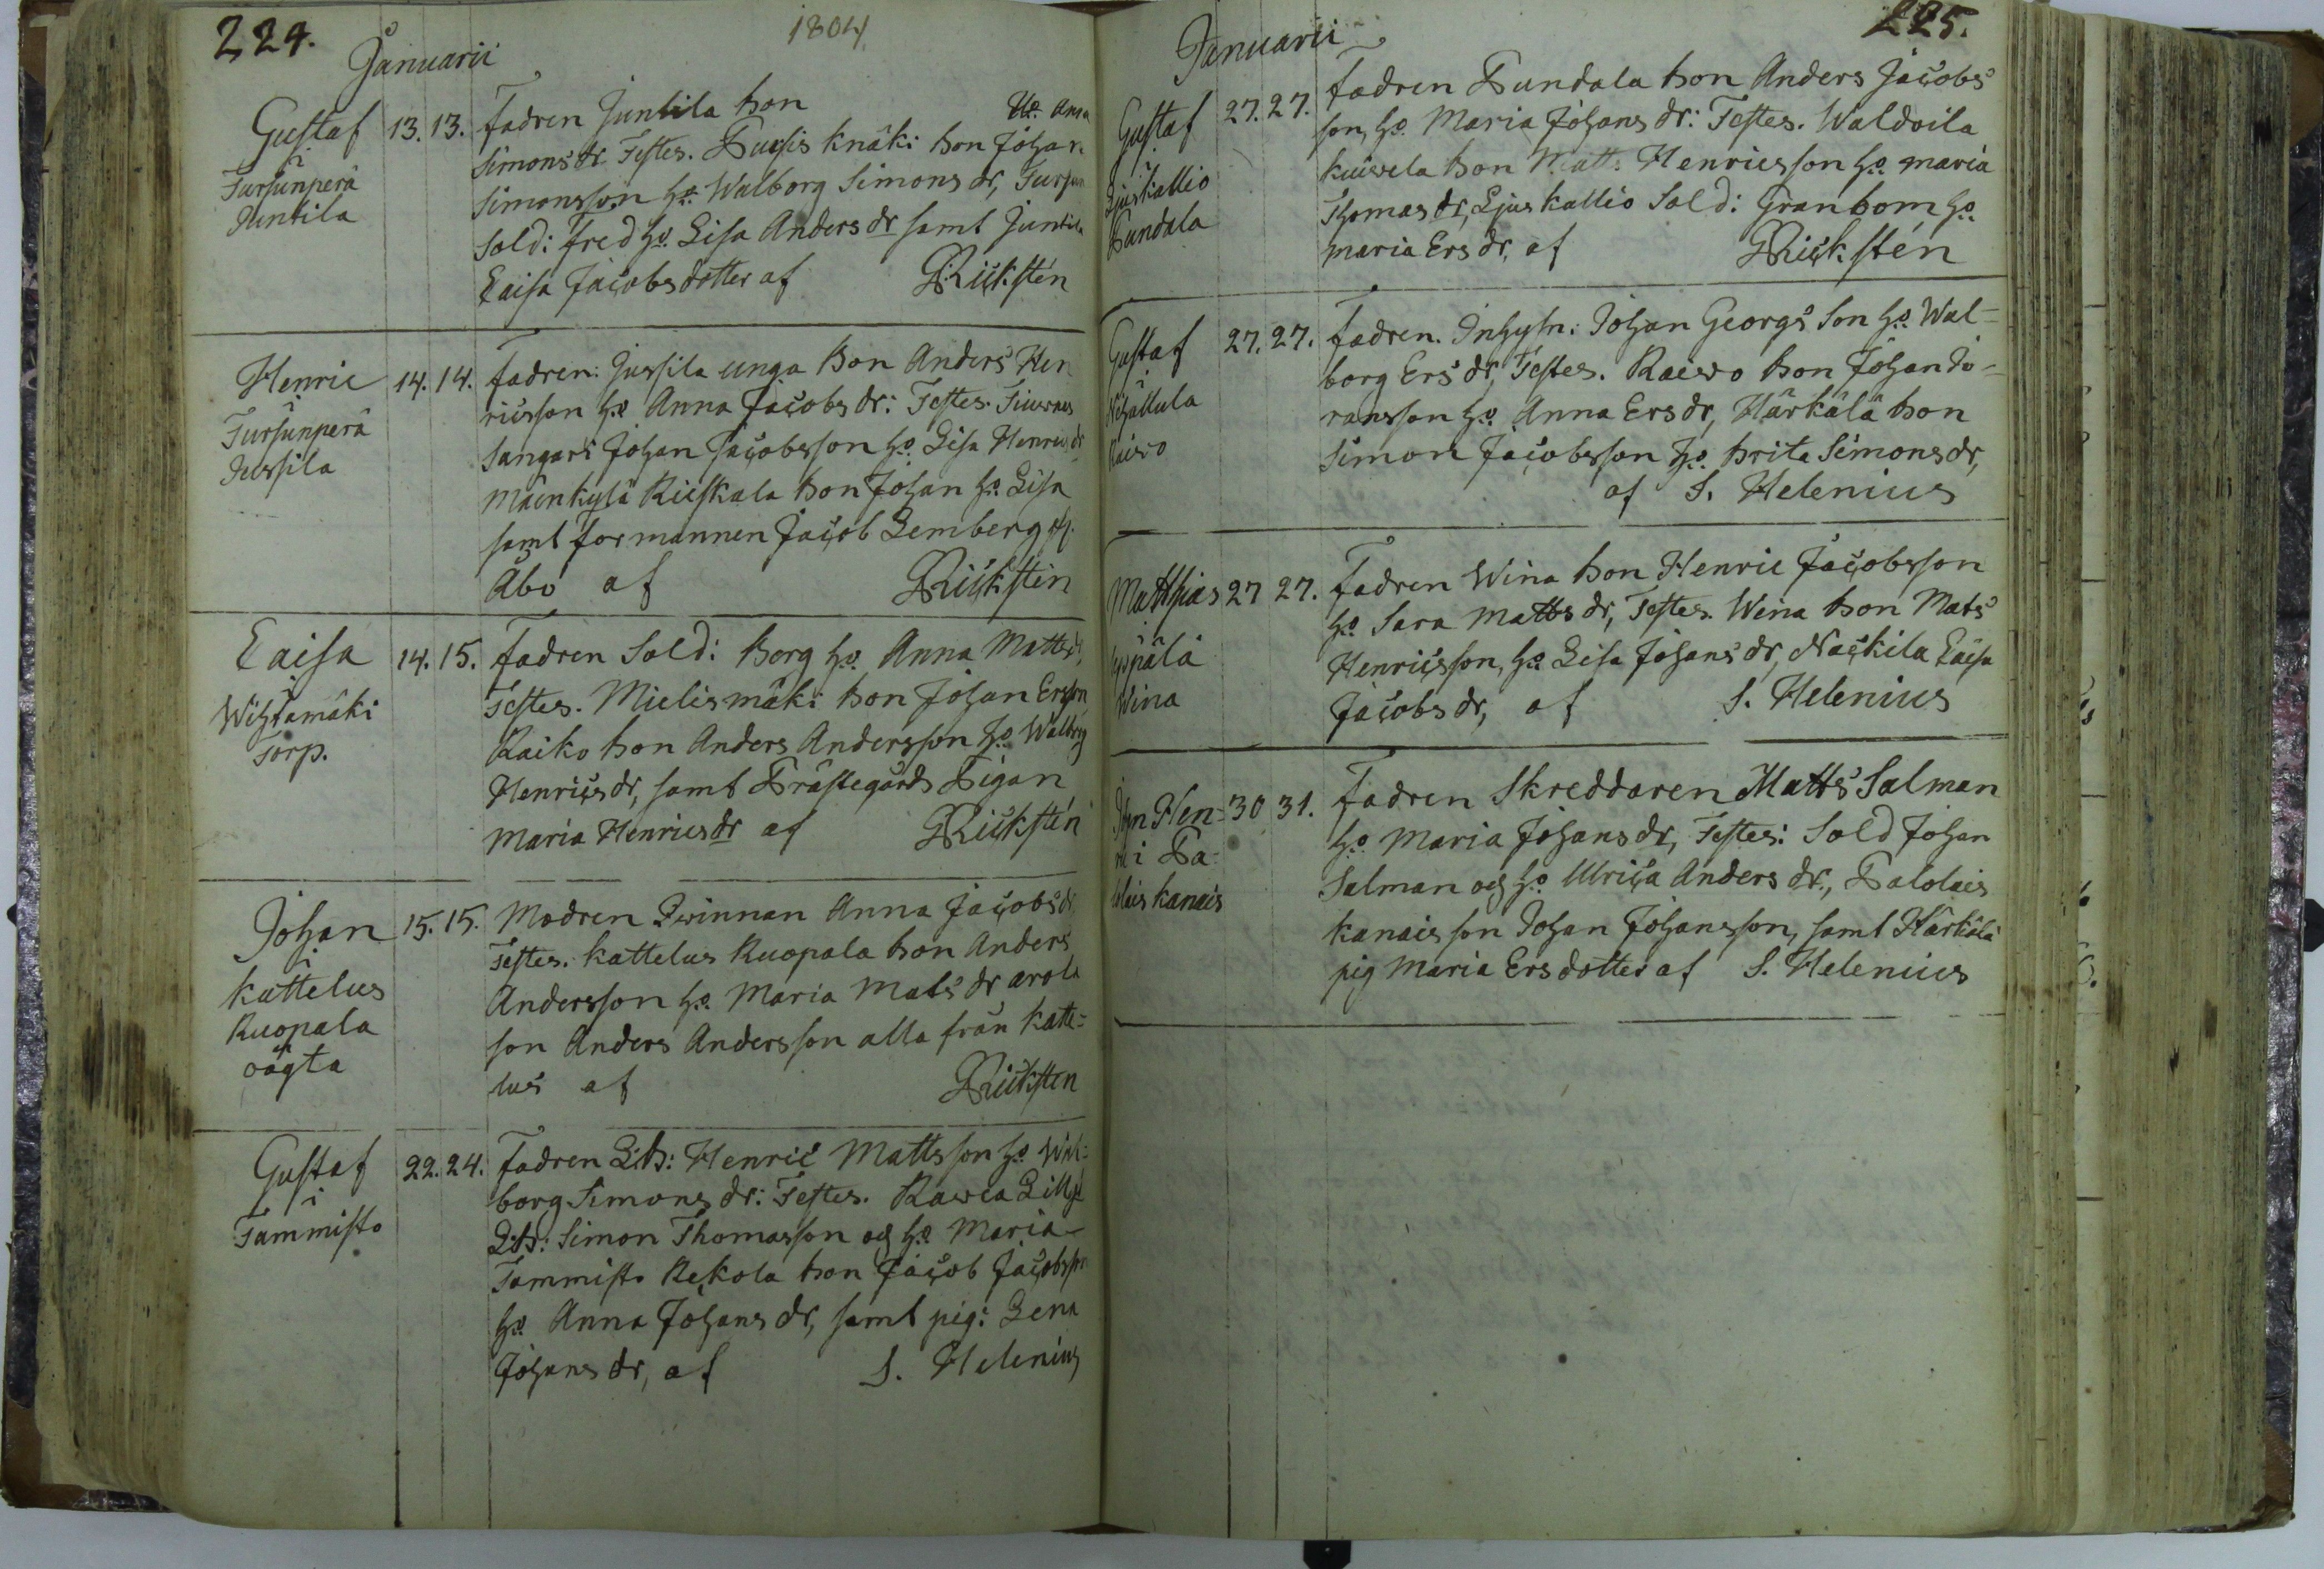 224.
1804
Januarii
Gustaf
i
Tursunperä
Juntila
13. 13. Fadren Juntila bon H:o Anna
Simons dr. Testes. Puisis knäki bon Johan
Simonsson h:o Walborg Simons dr, Tursun
Sold: Fred h:o Lisa Anders dr samt Juntila
Caisa Jacobsdotter af PRickstén
Henric
i
Tursunperä
Jussila
14. 14. Fadren: Jussila unga bon Anders Hen
ricsson h:o Anna Jacobs dr: Testes.
Sangari Johan Jacobsson h:o Lisa Henrics dr
Mäenkylä Riiskala bon Johan h:o Lisa
samt formannen Jacob Lemberg
Åbo af PRickstén
Caisa
i
Wihtamäki
Torp.
14. 15. Fadren Sold: Borg h:o Anna Matts dr,
Testes. Mielismäki bon Johan Ersson
Raiko bon Anders Andersson h:o Walborg
Henrics dr, samt Prästegårds Pigan
Maria Henrics dr af PRickstén
Johan
i
Kattelus
Ruopala
oägta
15. 15. Modren Qwinnan Anna Jacobs dr
Testes. Kattelus Ruopala bon Anders
Andersson h:o Maria Mats dr Arola
son Anders Andersson alla från Katte=
lus af PRicksten
Gustaf
i
Tammisto
22. 24. Fadren L:b: Henric Mattsson h:o Wal=
borg Simons dr: Testes. Rawea
L:b: Simon Thomasson och h:o Maria
Tammisto Rekola bon Jacob Jacobsson
h:o Anna Johans dr, samt pig: Lena
Johans dr, af S. Helenius
225.
Januarii
Gustaf
i
Ljuskallio
Pundala
27. 27. Fadren Pundala bon Anders Jacobs
son, h:o Maria Johans dr: Testes. Waldoila
Kuiwela bon Matt: Henricsson h:o Maria
Thomas dr, Ljuskallio Sold: Granbom h:o
Maria Ers dr, af PRickstén
Gustaf
i
Raiwo
27. 27. Fadren. Inhysn: Johan Georgs Son h:o Wal=
borg Ers dr, Testes. Raiwo bon Johan Jö=
ransson h:o Anna Ers dr, Härkälä bon
Simon Jacobsson h:o Brita Simons dr,
af S. Helenius
Matthias
i
Wina
27 27. Fadren Wina bon Henric Jacobsson
h:o Sara Matts dr, Testes. Wina bon Mats
Henricsson, h:o Lisa Johans dr, Nackila Caisa
Jacobs dr, af S. Helenius
Johan Hen=
ric i Pa=
lolais kanais
30 31. Fadren Skreddaren Matts Salman
h:o Maria Johans dr, Testes: Sold Johan
Salman och h:o Ulrica Anders dr., Palolais
kanais son Johan Johansson, samt Härkälä
pig Maria Ersdotter af S. Helenius